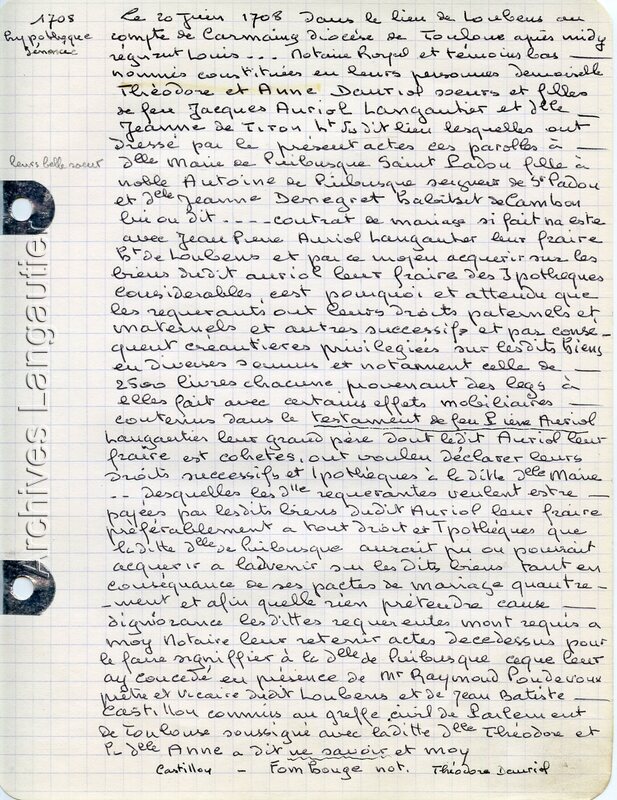 1708
Hypotheque
dénoncée
Le 20 Juin 1708 Dans le lieu de Loubens au
compte de Carmaing diocèse de Toulouse après midy
régnant Louis ... Notaire Royal et témoins bas
nommés constituées en leurs personnes demoiselle
Théodore et Anne Dauriol soeurs et filles
de feu Jacques Auriol Langautier et dlle
Jeanne de Tiron ht dudit lieu lesquelles ont
dressé par le present actes ces parolles à
leurs belle soeur
dlle Marie de Puibusque Saint Padou fille à
noble Antoine de Puibusque seigneur de St Padou
et dlle Jeanne Denegret habitant de Cambon
lui ou dit .... contrat de mariage si fait na este
avec Jean Pierre Auriol Langautier leur fraire
ht de Loubens et par ce moyen acquerir sur les
biens dudit auriol leur fraire des Ypotheques
considerables, c'est pourquoi et attendu que
les requerants ont leurs droits paternels et
maternels et autres successifs et par conse-
quent créantieres privilegiées sur lesdits biens
en diverses sommes et notament celle de
2500 livres chacune provenant des legs à
elles fait avec certains effets mobiliaires
contenus dans le testament de feu Piere Auriol
Langautier leur grand père dont ledit Auriol leur
fraire est coheté, ont voulu déclarer leurs
droits successifs et Ipothèques à la ditte dlle Marie
.. Desquelles les dlle requerantes veulent estre
payées par lesdits biens dudit Auriol leur fraire
préférablement a tout droit et Ipothéques que
laditte dlle de Puibusque auroit pu ou pouroit
acquerir a ladvenir sur les dits biens tant en
conséquance de ses pactes de mariage quautre-
ment et afin quelle rien prétendre cause
dignorance les dittes requerentes mont requis a
moy Notaire leur retenir actes decedessus pour
le faire signiffier à la dlle de Puibusque ceque leur
ay concedé en présence de Mr Raymond Poudevoux
prêtre et vicaire dudit Loubens et de Jean Batiste
Castillon commis au greffe civil de Parlement
de Toulouse soussigné avec laditte dlle Théodore et
la dlle Anne a dit ne savoir et moy
Castillon - Fom Rouge not. Théodore Dauriol
Archives Langautier